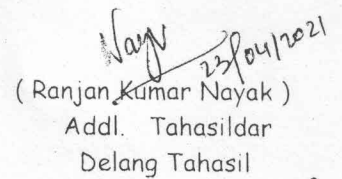 Nayak
23/04/2021
( Ranjan Kumar Nayak )
Addl. Tahasildar
Delang Tahasil